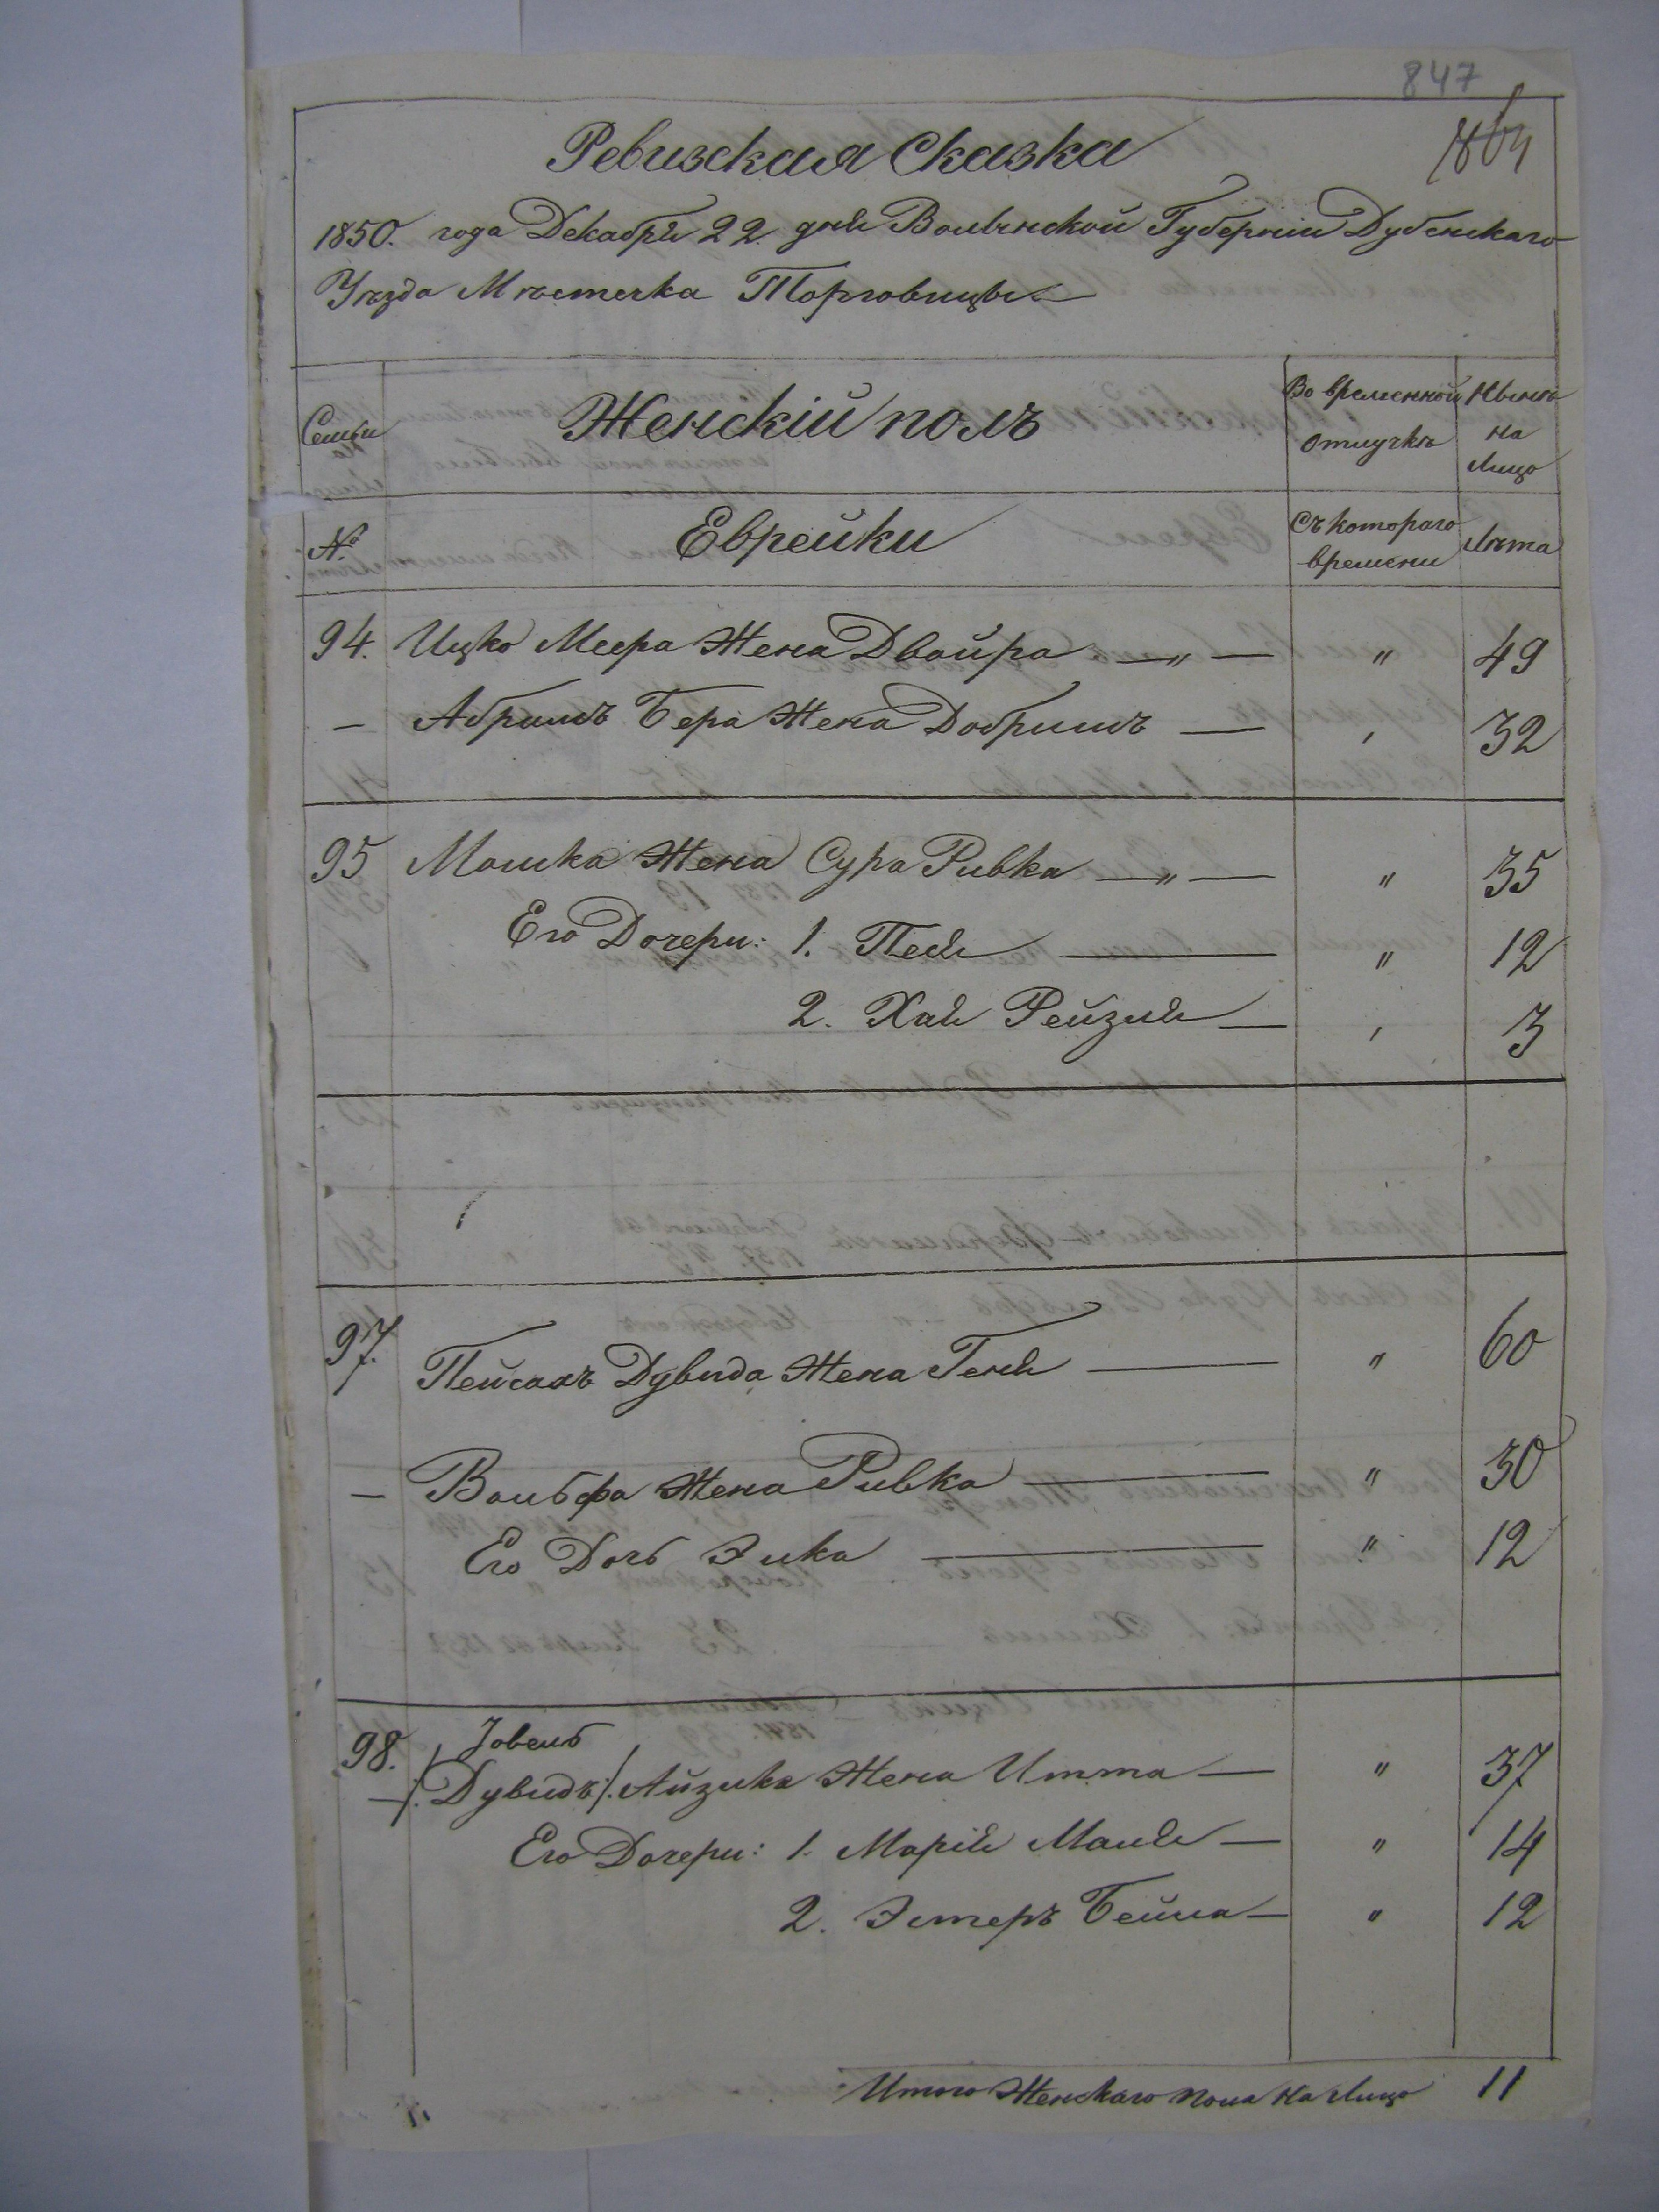 847
Ревизская Сказка
1850. года Декабря 22 дня Волынской Губерніи Дубенскаго
Уѣзда Мѣстечка Торговицы
Семьи
Женскій полъ
Во временной отлучкѣ
Нынѣ на лицо
№
Еврейки
Съ котораго времени
Лѣта
94. Ицко Меера Жена Двойра — „ — „ 49
— Абрамъ Бера Жена Добришъ — , 32
95 Мошка Жена Сура Ривка — „ — „ 35
Его Дочери: 1. Песя — „ 12
2. Хая Рейзля — , 3
97. Пейсахъ Дувида Жена Геня — „ 60
— Вольфа Жена Ривка — „ 30
Его Дочь Элка — „ 12
98. Іовель
— /:Дувидъ:/ Айзика Жена Итта — „ 37
Его Дочери: 1. Марія Маля — „ 14
2. Эстеръ Бейла — „ 12
Итого Женскаго пола на лицо 11